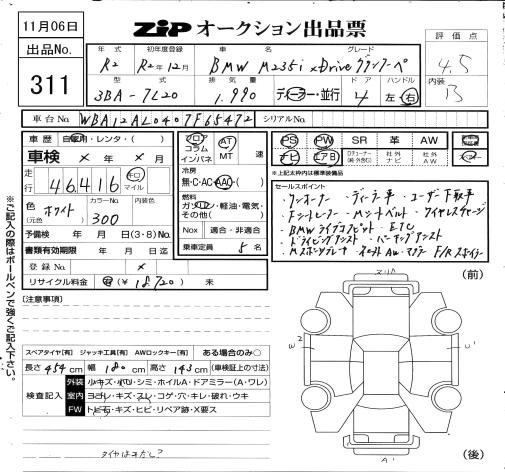 11月06日
ZIP オークション出品票
出品No.
311
評価点
4.5
内装
B
年式 初年度登録 車名 グレード
R2 R2年12月 BMW M235i xDrive グランクーペ
型式 排気量 ドア ハンドル
3BA-7L20 1,990 ディーラー・並行 4 左・右
車台No. WBA12AL0407F65472 シリアルNo.
車歴 自家用・レンタ・( )
車検 × 年 × 月
走行 46,416 キロ マイル
色(元色) ホワイト カラーNo. 300 内装色
予備検 年 月 日(3・8)No.
書類有効期限 年 月 日
登録No. ×
リサイクル料金 (¥ 18,720) 未
フロア コラム インパネ AT MT 速
冷房
無・C・AC・AAC・( )
燃料
ガソリン・軽油・電気・その他( )
Nox 適合・非適合
乗車定員 5名
PS PW SR 革 AW
ナビ エアB 社外ナビ 社外AW
*上記太枠内は標準装備品
セールスポイント
・ワンオーナー ・ディーラー車 ・ユーザー下取車
・Fシートヒーター ・Mシートベルト ・ワイヤレスチャージ
・BMWライブコックピット ・ETC
・ドライビングアシスト ・パーキングアシスト
※ご記入の際はボールペンで強くご記入下さい。
[注意事項]
スペアタイヤ[有] ジャッキ工具[有] AWロックキー[有] ある場合のみ〇
長さ 454cm 幅 180cm 高さ 143cm (車検証上の寸法)
検査記入
外装 小キズ・凹リ・シミ・ホイルA・ドアミラー(A・ワレ)
室内 ヨゴレ・キズ・スレ・コゲ・穴・キレ・破れ・ウキ
FW トビ石・キズ・ヒビ・リペア跡・X要ス
(前)
W2
U1
A1
(後)